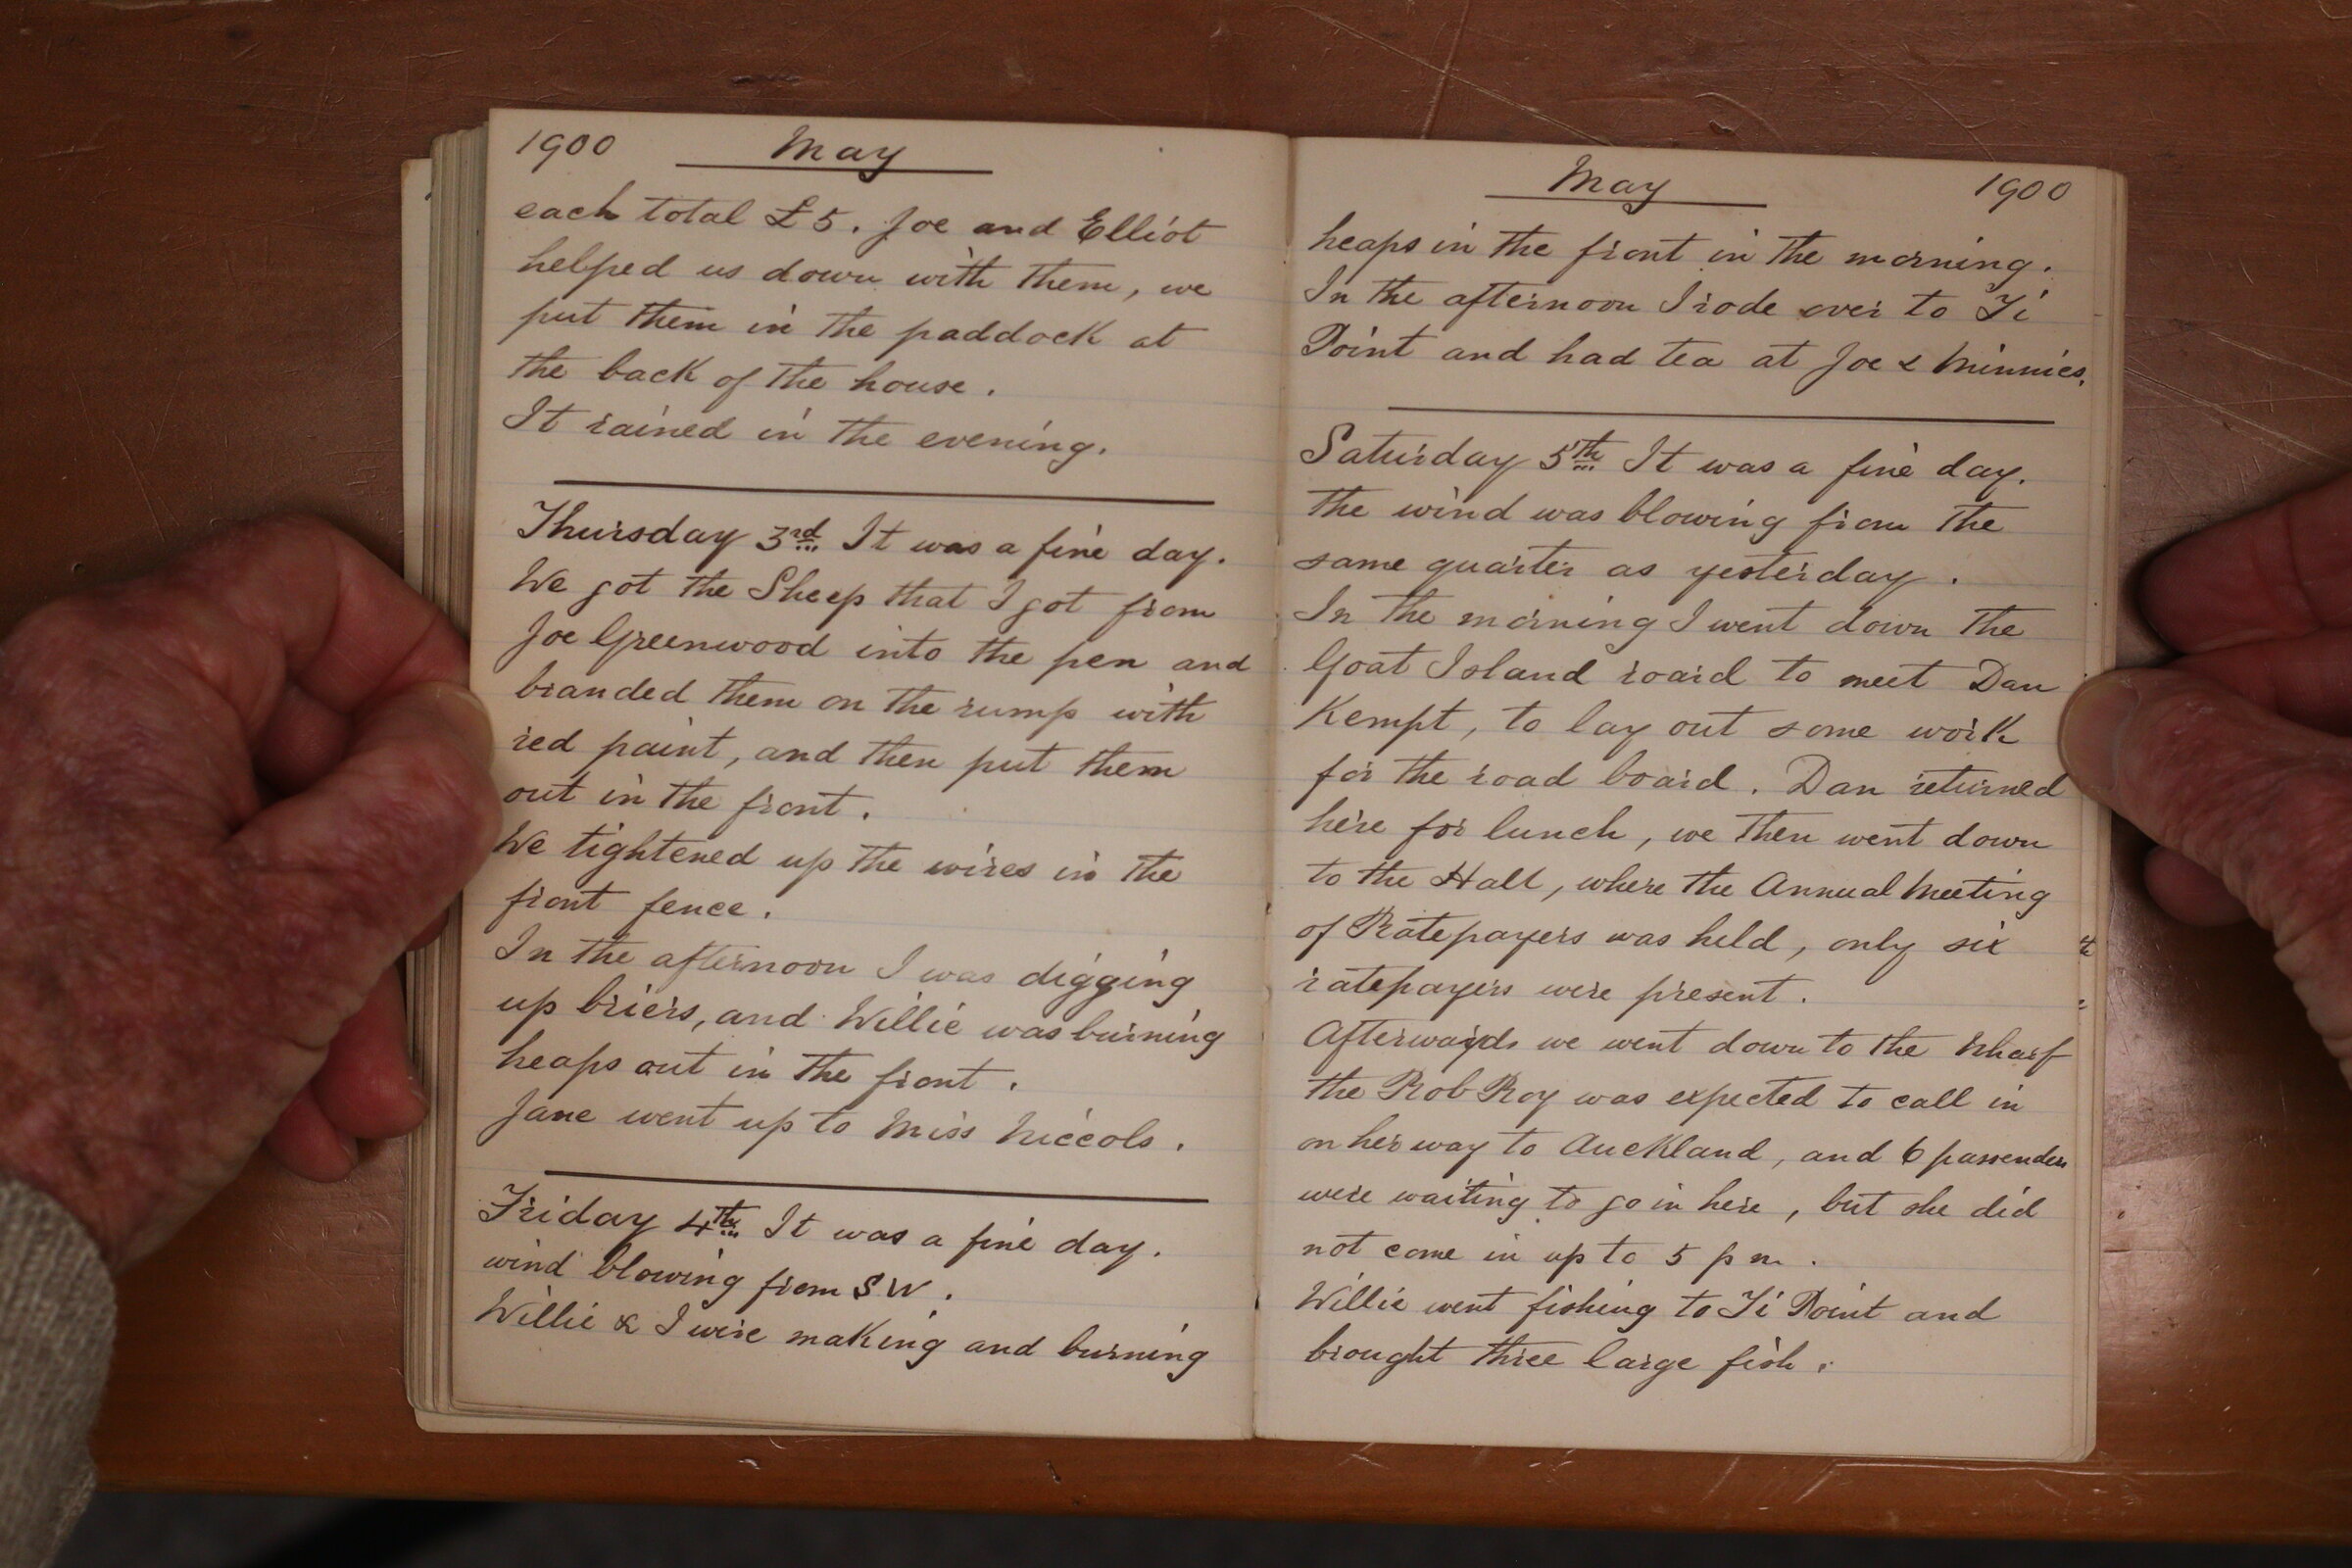 1900 May
each total £5. Joe and Elliot
helped us down with them, we
put them in the paddock at
the back of the house.
It rained in the evening.
Thursday 3rd It was a fine day.
We got the Sheep that I got from
Joe Greenwood into the pen and
branded them on the rump with
red paint, and then put them
out in the front.
We tightened up the wires in the
front fence.
In the afternoon I was digging
up briers, and Willie was burning
heaps out in the front.
Jane went up to Miss Niccols.
Friday 4th It was a fine day.
wind blowing from SW.
Willie & I were making and burning
May 1900
heaps in the front in the morning.
In the afternoon I rode over to Ti
Point and had tea at Joe & Minnies.
Saturday 5th It was a fine day.
The wind was blowing from the
same quarter as yesterday.
In the morning I went down the
Goat Island roard to meet Dan
Kempt, to lay out some work
for the road board. Dan returned
here for lunch, we then went down
to the Hall, where the Annual Meeting
of Ratepayers was held, only six
ratepayers were present.
Afterwards we went down to the Wharf
the Rob Roy was expected to call in
on her way to Auckland, and 6 passenders
were waiting to go in here, but she did
not come in up to 5 pm.
Willie went fishing to Ti Point and
brought three large fish.